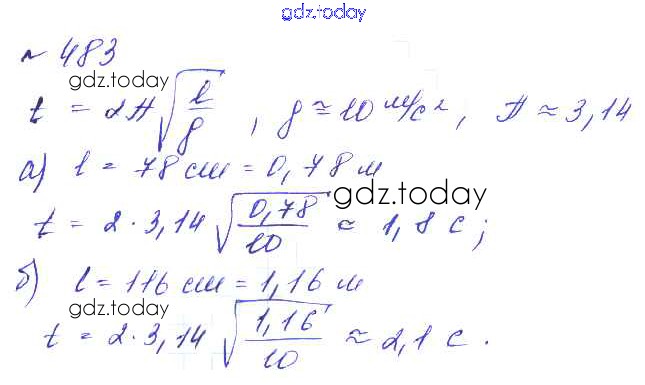 gdz.today
№ 483
gdz.today
t = 2π√(l/g), g ≈ 10 м/с², π ≈ 3,14
а) l = 78 см = 0,78 м
gdz.today
t = 2·3,14 √(0,78/10) ≈ 1,8 с;
б) l = 116 см = 1,16 м
gdz.today
t = 2·3,14 √(1,16/10) ≈ 2,1 с.